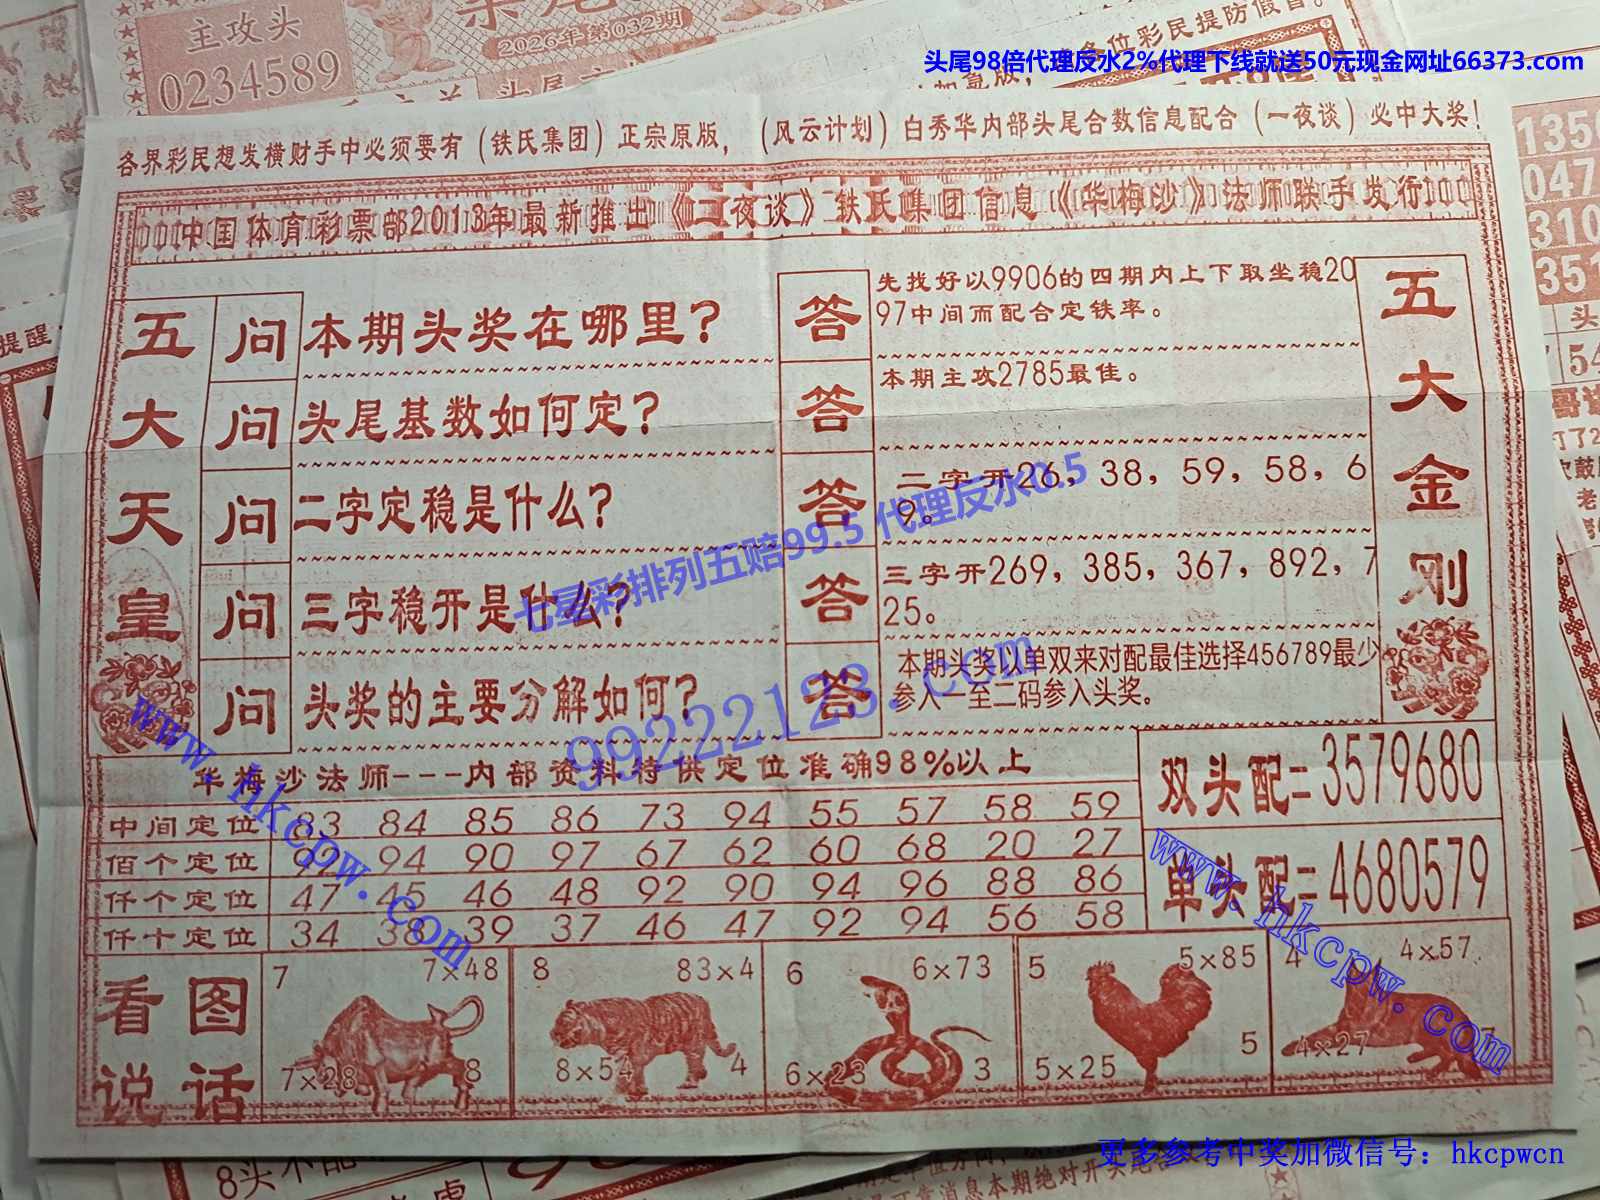 主攻头
0234589
2026年第032期
各位彩民提防假冒。
头尾98倍代理反水2%代理下线就送50元现金网址66373.com
各界彩民想发横财手中必须要有（铁氏集团）正宗原版，（风云计划）白秀华内部头尾合数信息配合（一夜谈）必中大奖！
中国体育彩票部2013年最新推出《一夜谈》铁氏集团信息《华梅沙》法师联手发行
五大天皇
问 本期头奖在哪里？
答 先找好以9906的四期内上下取坐稳20
97中间而配合定铁率。
问 头尾基数如何定？
答 本期主攻2785最佳。
问 二字定稳是什么？
答 二字开26，38，59，58，6
9。
问 三字稳开是什么？
答 三字开269，385，367，892，7
25。
问 头奖的主要分解如何？
答 本期头奖以单双来对配最佳选择456789最少
参入一至二码参入头奖。
五大金刚
七星彩排列五赔99.5 代理反水0.5
99222123.com
www.hkcpw.com
华梅沙法师---内部资料特供定位准确98%以上
中间定位 83 84 85 86 73 94 55 57 58 59
佰个定位 92 94 90 97 67 62 60 68 20 27
仟个定位 47 45 46 48 92 90 94 96 88 86
仟十定位 34 38 39 37 46 47 92 94 56 58
双头配=3579680
单头配=4680579
www.hkcpw.com
看图说话
7 7×48
7×28 8
8 83×4
8×54 4
6 6×73
6×23 3
5 5×85
5×25 5
4 4×57
4×27 7
更多参考中奖加微信号：hkcpwcn